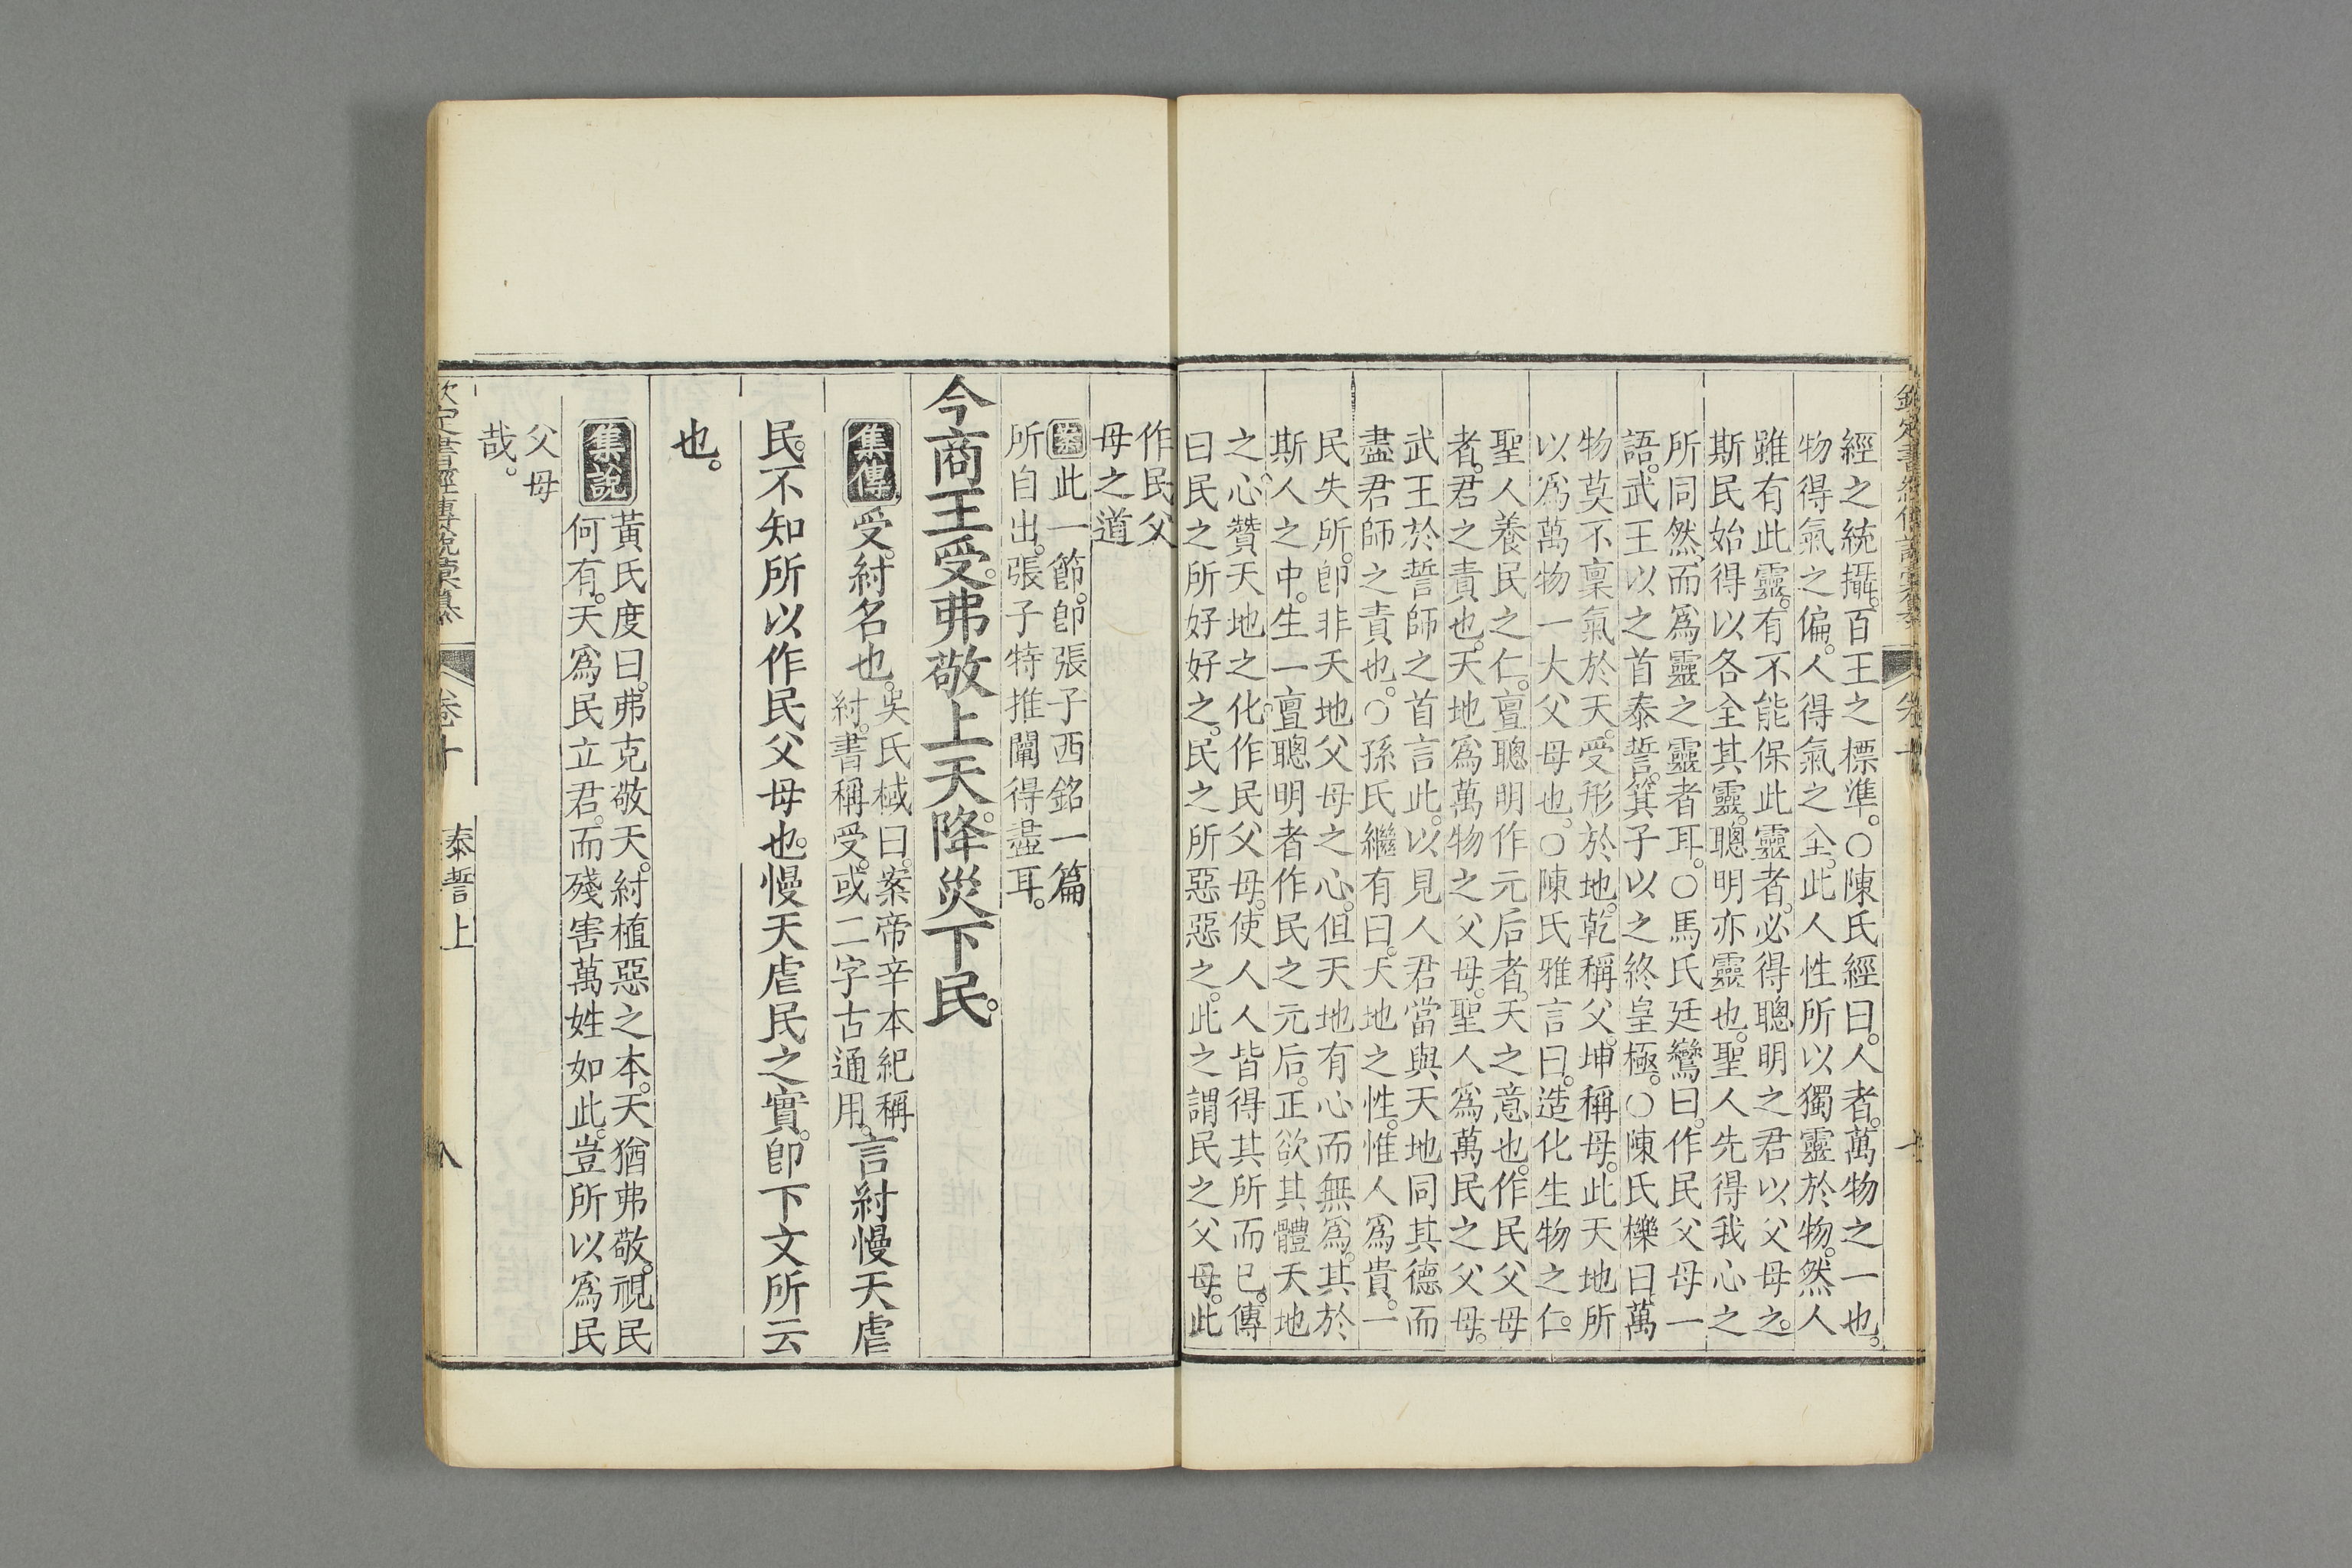 經之統攝。百王之標準。○陳氏經曰。人者。萬物之一也。
物得氣之偏。人得氣之全。此人性所以獨靈於物。然人
雖有此靈。有不能保此靈者。必得聰明之君以父母之。
斯民始得以各全其靈。聰明亦靈也。聖人先得我心之
所同然。而爲靈之靈者耳。○馬氏廷鸞曰。作民父母一
語。武王以之首泰誓。箕子以之終皇極。○陳氏櫟曰萬
物莫不稟氣於天。受形於地。乾稱父。坤稱母。此天地所
以爲萬物一大父母也。○陳氏雅言曰。造化生物之仁。
聖人養民之仁。亶聰明作元后者。天之意也。作民父母
者。君之責也。天地爲萬物之父母。聖人爲萬民之父母。
武王於誓師之首言此。以見人君當與天地同其德而
盡君師之責也。○孫氏繼有曰。天地之性。惟人爲貴。一
民失所。卽非天地父母之心。但天地有心而無爲。其於
斯人之中。生一亶聰明者作民之元后。正欲其體天地
之心。贊天地之化。作民父母。使人人皆得其所而已。傳
曰民之所好好之。民之所惡惡之。此之謂民之父母。此
作民父
母之道
案此一節。卽張子西銘一篇
所自出。張子特推闡得盡耳。
今商王受。弗敬上天。降災下民。
集傳受。紂名也。吳氏棫曰。案帝辛本紀稱
紂。書稱受。或二字古通用。言紂慢天虐
民。不知所以作民父母也。慢天虐民之實。卽下文所云
也。
集說黃氏度曰。弗克敬天。紂植惡之本。天猶弗敬。視民
何有。天爲民立君。而殘害萬姓如此。豈所以爲民
父母
哉。
欽定書經傳說彙纂 卷十 泰誓上 八